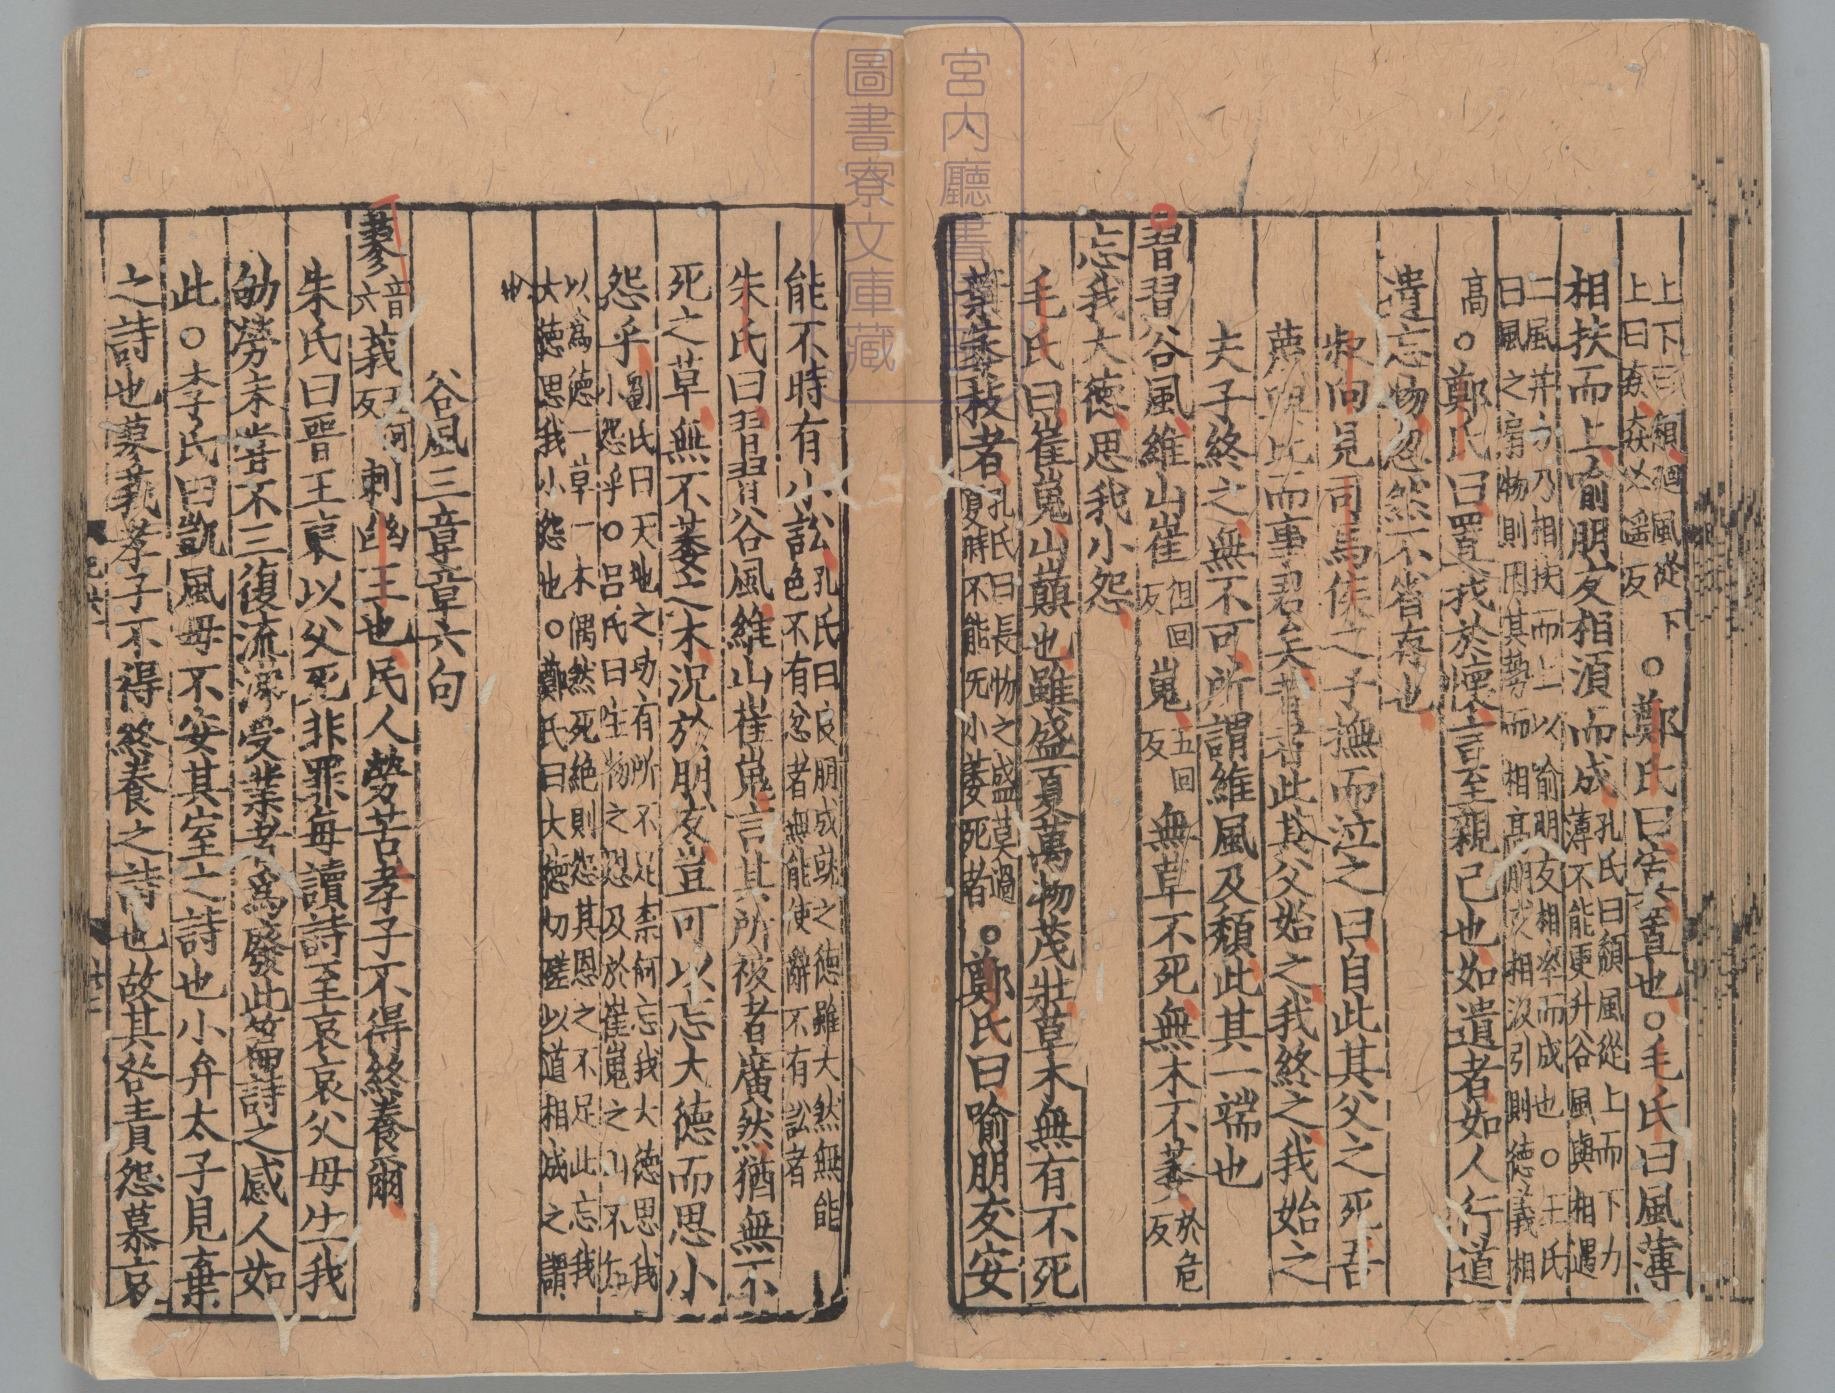 上下曰頹迴風從下
上曰焱焱必遥反
○鄭氏曰寘置也○毛氏曰風薄
相扶而上喻朋友相湏而成
孔氏曰頹風從上而下力
薄不能更升谷風與相遇
二風并力乃相扶而上以喻朋友相率而成也○王氏
曰風之扇物則因其勢而相髙朋友相汲引則徳義相
髙
○鄭氏曰置我於懷言至親己也如遺者如人行道
遺忘物忽然不省存也
叔向見司馬侯之子撫而泣之曰自此其父之死吾
蔑與比而事君矣昔者此其父始之我終之我始之
夫子終之無不可所謂維風及頹此其一端也
習習谷風維山崔
徂回
反
嵬
五回
反
無草不死無木不萎
於危
反
忘我大徳思我小怨
毛氏曰崔嵬山巔也雖盛夏萬物茂壯草木無有不死
葉萎枝者
孔氏曰長物之盛莫過
夏時不能无小萎死者
○鄭氏曰喻朋友安
能不時有小訟
孔氏曰良朋成就之徳雖大然無能
色不有忿者無能使辭不有訟者
朱氏曰習習谷風維山崔嵬言其所被者廣然猶無不
死之草無不萎之木況於朋友豈可以忘大徳而思小
怨乎
劉氏曰天地之功有所不足柰何忘我大徳思我
小怨乎○吕氏曰生物之怨及於崔嵬之山不知
以爲徳一草一木偶然死絶則怨其恩之不足此忘我
大徳思我小怨也○鄭氏曰大徳切瑳以道相成之謂
也
谷風三章章六句
蓼
音
六
莪
五何
反
刺幽王也民人勞苦孝子不得終養爾
朱氏曰晋王裒以父死非罪毎讀詩至哀哀父母生我
劬勞未甞不三復流涕受業者爲發此篇詩之感人如
此○李氏曰凱風母不安其室之詩也小弁太子見棄
之詩也蓼莪孝子不得終養之詩也故其咎責怨慕哀
宮内廳書
圖書寮文庫藏